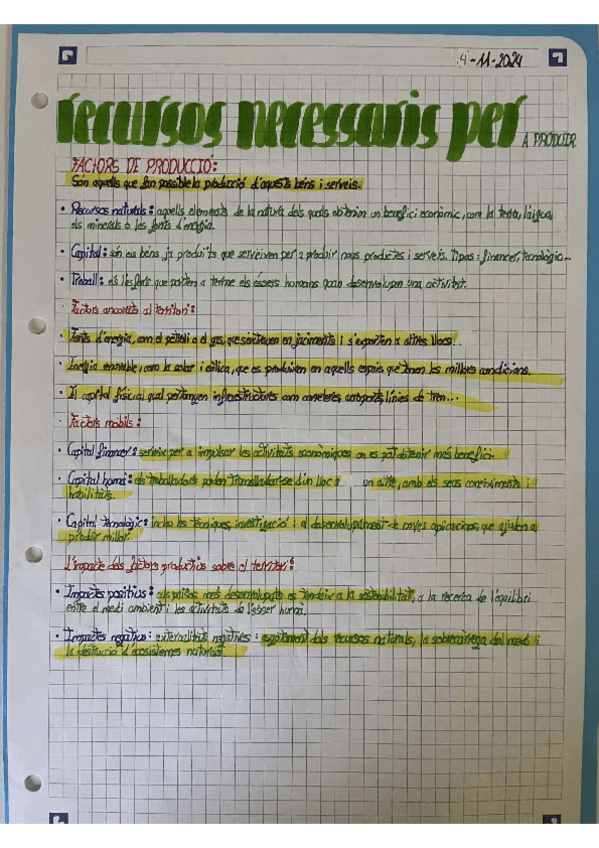 4-11-2024
recursos necessaris per A PRODUIR.
FACTORS DE PRODUCCIÓ:
Són aquells que fan possible la producció d'aquests béns i serveis.
• Recursos naturals: aquells elements de la natura dels quals obtenim un benefici econòmic, com la terra, l'aigua,
els minerals o les fonts d'energia.
• Capital: són els béns ja produïts que serveixen per a produir nous productes i serveis. Tipus: financer, tecnològic...
• Treball: és l'esforç que porten a terme els éssers humans quan desenvolupen una activitat.
Factors ancorats al territori:
• Fonts d'energia, com el petroli o el gas, que s'extreuen en jaciments i s'exporten a altres llocs...
• Energia renovable, com la solar i eòlica, que es produeixen en aquells espais que tenen les millors condicions.
• El capital físic, al qual pertanyen infraestructures com carreteres, aeroports, línies de tren...
Factors mòbils:
• Capital financer: serveix per a impulsar les activitats econòmiques on es pot obtenir més benefici.
• Capital humà: els treballadors poden transladar-se d'un lloc a un altre, amb els seus coneixements i
habilitats.
• Capital tecnològic: inclou les tècniques, investigació i al desenvolupament de noves aplicacions que ajuden a
produir millor.
L'impacte dels factors productius sobre el territori:
• Impactes positius: als països més desenvolupats es tendeix a la sostenibilitat, a la recerca de l'equilibri
entre el medi ambient i les activitats de l'ésser humà.
• Impactes negatius: externalitats negatives: esgotament dels recursos naturals, la sobrecàrrega del medi i
la destrucció d'ecosistemes naturals.